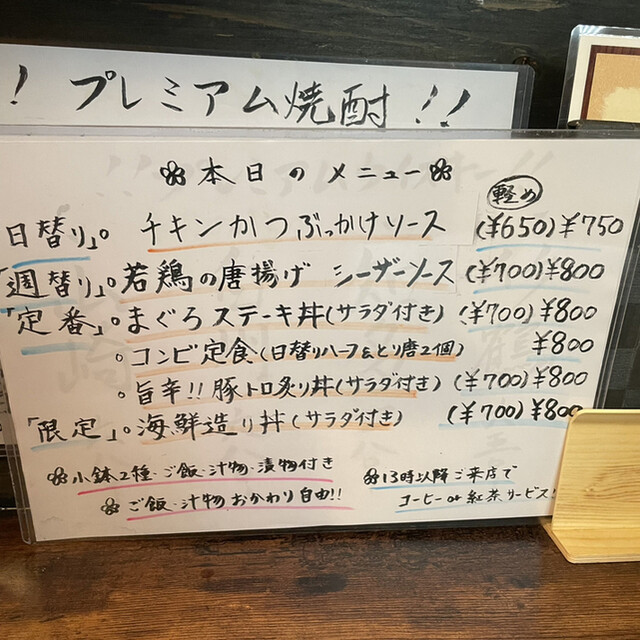 ! プレミアム焼酎 !!
本日のメニュー
軽め
「日替り」。 チキンかつぶっかけソース (¥650) ¥750
「週替り」。若鶏の唐揚げ シーザーソース (¥700) ¥800
「定番」。まぐろステーキ丼(サラダ付き) (¥700) ¥800
。コンビ定食(日替りハーフ&とり唐2個) ¥800
。旨辛!! 豚トロ炙り丼(サラダ付き) (¥700) ¥800
「限定」。海鮮造り丼(サラダ付き) (¥700) ¥800
小鉢2種・ご飯・汁物・漬物付き
ご飯・汁物、おかわり自由!!
13時以降ご来店で
コーヒーor紅茶サービス!